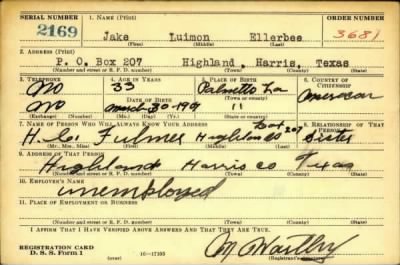 SERIAL NUMBER 1. NAME (Print) ORDER NUMBER
2169 Jake Luimon Ellerbee 3681
(First) (Middle) (Last)
2. ADDRESS (Print)
P. O. Box 207 Highland, Harris, Texas
(Number and street or R. F. D. number) (Town) (County) (State)
3. TELEPHONE 4. AGE IN YEARS 5. PLACE OF BIRTH 6. COUNTRY OF CITIZENSHIP
No 33 Palmetto La American
DATE OF BIRTH (Town or county)
No March-30-1907 11
(Exchange) (Number) (Mo.) (Day) (Yr.) (State or country)
7. NAME OF PERSON WHO WILL ALWAYS KNOW YOUR ADDRESS 8. RELATIONSHIP OF THAT PERSON
Box 207 Sister
(Mr., Mrs., Miss) (First) (Middle) (Last)
9. ADDRESS OF THAT PERSON
Highlands Harris Co Texas
(Number and street or R. F. D. number) (Town) (County) (State)
10. EMPLOYER'S NAME
unemployed
11. PLACE OF EMPLOYMENT OR BUSINESS
(Number and street or R. F. D. number) (Town) (County) (State)
I AFFIRM THAT I HAVE VERIFIED ABOVE ANSWERS AND THAT THEY ARE TRUE.
REGISTRATION CARD
D. S. S. Form 1 16—17105